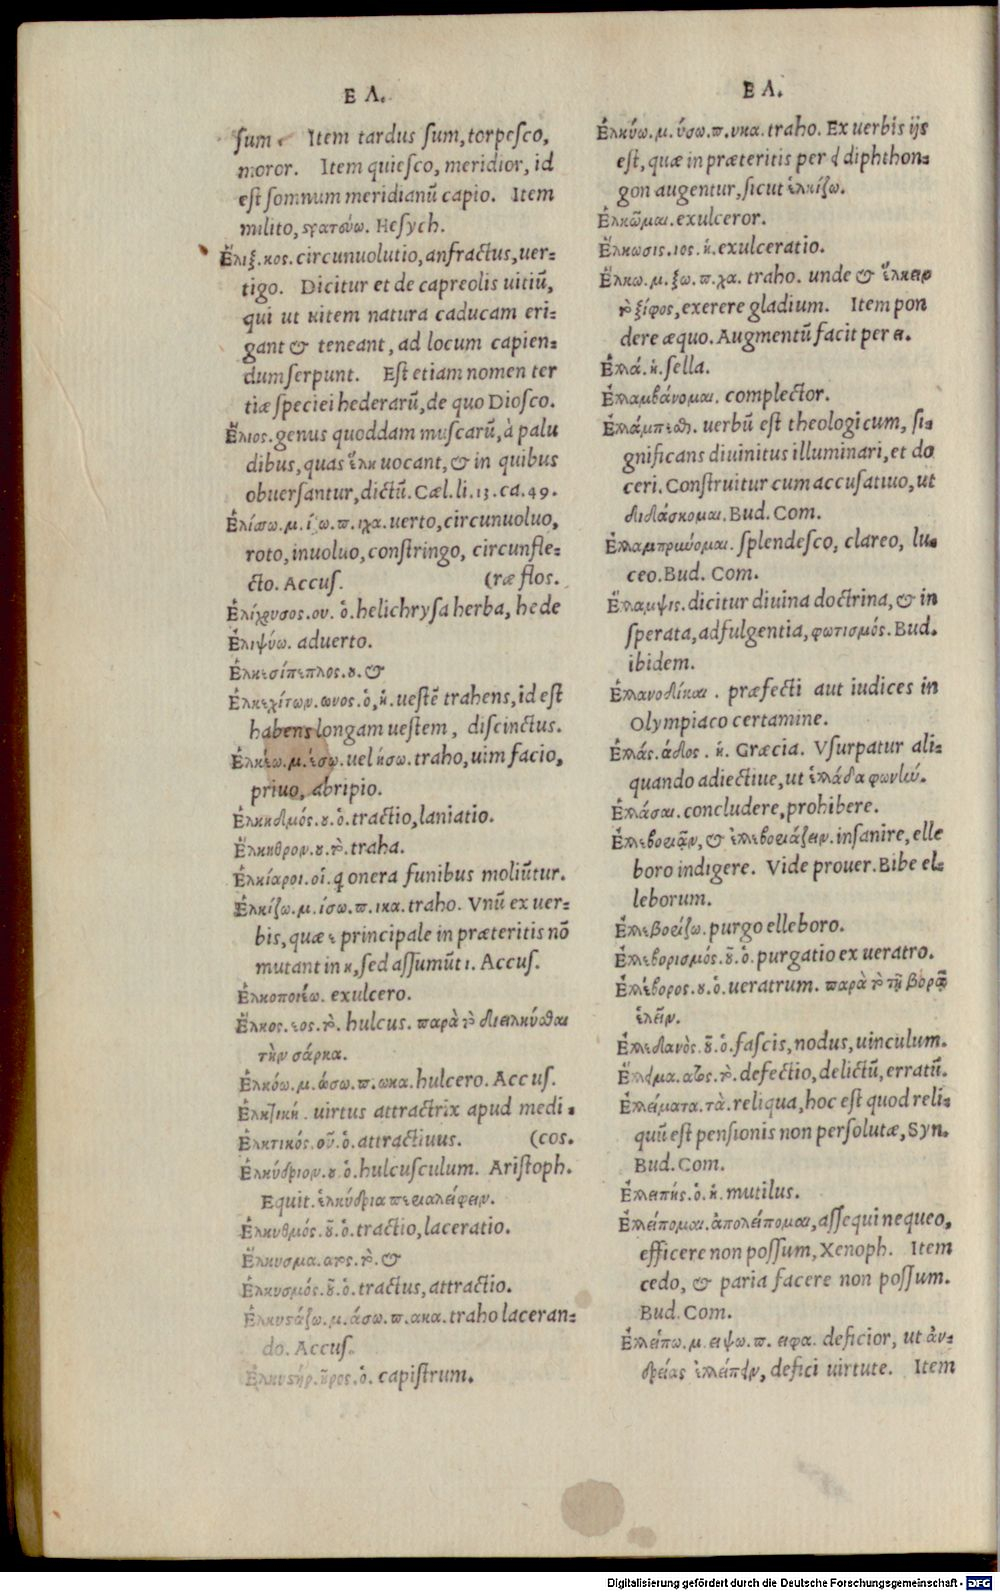 Ε Λ.
sum. Item tardus sum, torpesco,
moror. Item quiesco, meridior, id
est somnum meridianũ capio. Item
milito, στρατεύω. Hesych.
Ἕλιξ. κος. circunuolutio, anfractus, uer-
tigo. Dicitur et de capreolis uitiũ,
qui ut uitem natura caducam eri-
gant & teneant, ad locum capien-
dum serpunt. Est etiam nomen ter
tiæ speciei hederarũ, de quo Diosco.
Ἕλιος. genus quoddam muscarũ, à palu
dibus, quas ἕλη uocant, & in quibus
obuersantur, dictũ. Cæl. li. 13. ca. 49.
Ἑλίσσω. μ. ξω. π. ιχα. uerto, circunuoluo,
roto, inuoluo, constringo, circunfle-
cto. Accus. (ræ flos.
Ἑλίχρυσος. ου. ὁ. helichrysa herba, hede
Ἑλιψύω. aduerto.
Ἑλκεσίπεπλος. ου. &
Ἑλκεχίτων. ωνος. ὁ, ἡ. uestẽ trahens, id est
habens longam uestem, discinctus.
Ἑλκέω. μ. έσω. uel ήσω. traho, uim facio,
priuo, abripio.
Ἑλκηδμός. ου. ὁ. tractio, laniatio.
Ἕλκηθρον. ου. τὸ. traha.
Ἑλκίαροι. οἱ. q̃ onera funibus moliũtur.
Ἑλκίζω. μ. ίσω. π. ικα. traho. Vnũ ex uer-
bis, quæ ε principale in præteritis nõ
mutant in η, sed assumũt ι. Accus.
Ἑλκοποιέω. exulcero.
Ἕλκος. εος. τὸ. hulcus. παρὰ τὸ διελκύσθαι
τὴν σάρκα.
Ἑλκόω. μ. ώσω. π. ωκα. hulcero. Accus.
Ἑλκτική. uirtus attractrix apud medi-
Ἑλκτικός. οῦ. ὁ. attractiuus. (cos.
Ἑλκύδριον. ου. ὁ. hulcusculum. Aristoph.
Equit. ἑλκύδρια περιαλείφειν.
Ἑλκυθμός. οῦ. ὁ. tractio, laceratio.
Ἕλκυσμα. ατος. τὸ. &
Ἑλκυσμός. οῦ. ὁ. tractus, attractio.
Ἑλκυστάζω. μ. άσω. π. ακα. traho laceran-
do. Accus.
Ἑλκυστήρ. ῆρος. ὁ. capistrum.
Ε Λ.
Ἑλκύω. μ. ύσω. π. υκα. traho. Ex uerbis ijs
est, quæ in præteritis per ει diphthon-
gon augentur, sicut ἑλκίζω.
Ἑλκῶμαι. exulceror.
Ἕλκωσις. ιος. ἡ. exulceratio.
Ἕλκω. μ. ξω. π. χα. traho. unde & ἕλκειν
τὸ ξίφος, exerere gladium. Item pon
dere æquo. Augmentũ facit per ει.
Ἑλλά. ἡ. sella.
Ἐλλαμβάνομαι. complector.
Ἐλλάμπεσθ. uerbũ est theologicum, si-
gnificans diuinitus illuminari, et do
ceri. Construitur cum accusatiuo, ut
διδάσκομαι. Bud. Com.
Ἐλλαμπρύνομαι. splendesco, clareo, lu-
ceo. Bud. Com.
Ἔλλαμψις. dicitur diuina doctrina, & in
sperata, adfulgentia, φωτισμός. Bud.
ibidem.
Ἑλλανοδίκαι. præfecti aut iudices in
Olympiaco certamine.
Ἑλλάς. άδος. ἡ. Græcia. Vsurpatur ali-
quando adiectiue, ut ἑλλάδα φωνὴν.
Ἐλλάσαι. concludere, prohibere.
Ἑλλεβοριᾷν, & ἑλλεβοριάζειν. insanire, elle
boro indigere. Vide prouer. Bibe el-
leborum.
Ἑλλεβορίζω. purgo elleboro.
Ἑλλεβορισμός. οῦ. ὁ. purgatio ex ueratro.
Ἑλλέβορος. ου. ὁ. ueratrum. παρὰ τὸ τῇ βορᾷ
ἑλεῖν.
Ἐλλεδανὸς. οῦ. ὁ. fascis, nodus, uinculum.
Ἔλλειμα. ατος. τὸ. defectio, delictũ, erratũ.
Ἐλλείματα. τὰ. reliqua, hoc est quod reli-
quũ est pensionis non persolutæ, Syn.
Bud. Com.
Ἐλλειπής. ὁ. ἡ. mutilus.
Ἐλλείπομαι. ἀπολείπομαι, assequi nequeo,
efficere non possum, Xenoph. Item
cedo, & paria facere non possum.
Bud. Com.
Ἐλλείπω. μ. ειψω. π. ειφα. deficior, ut ἀν-
δρείας ἐλλείπειν, defici uirtute. Item
Digitalisierung gefördert durch die Deutsche Forschungsgemeinschaft - DFG